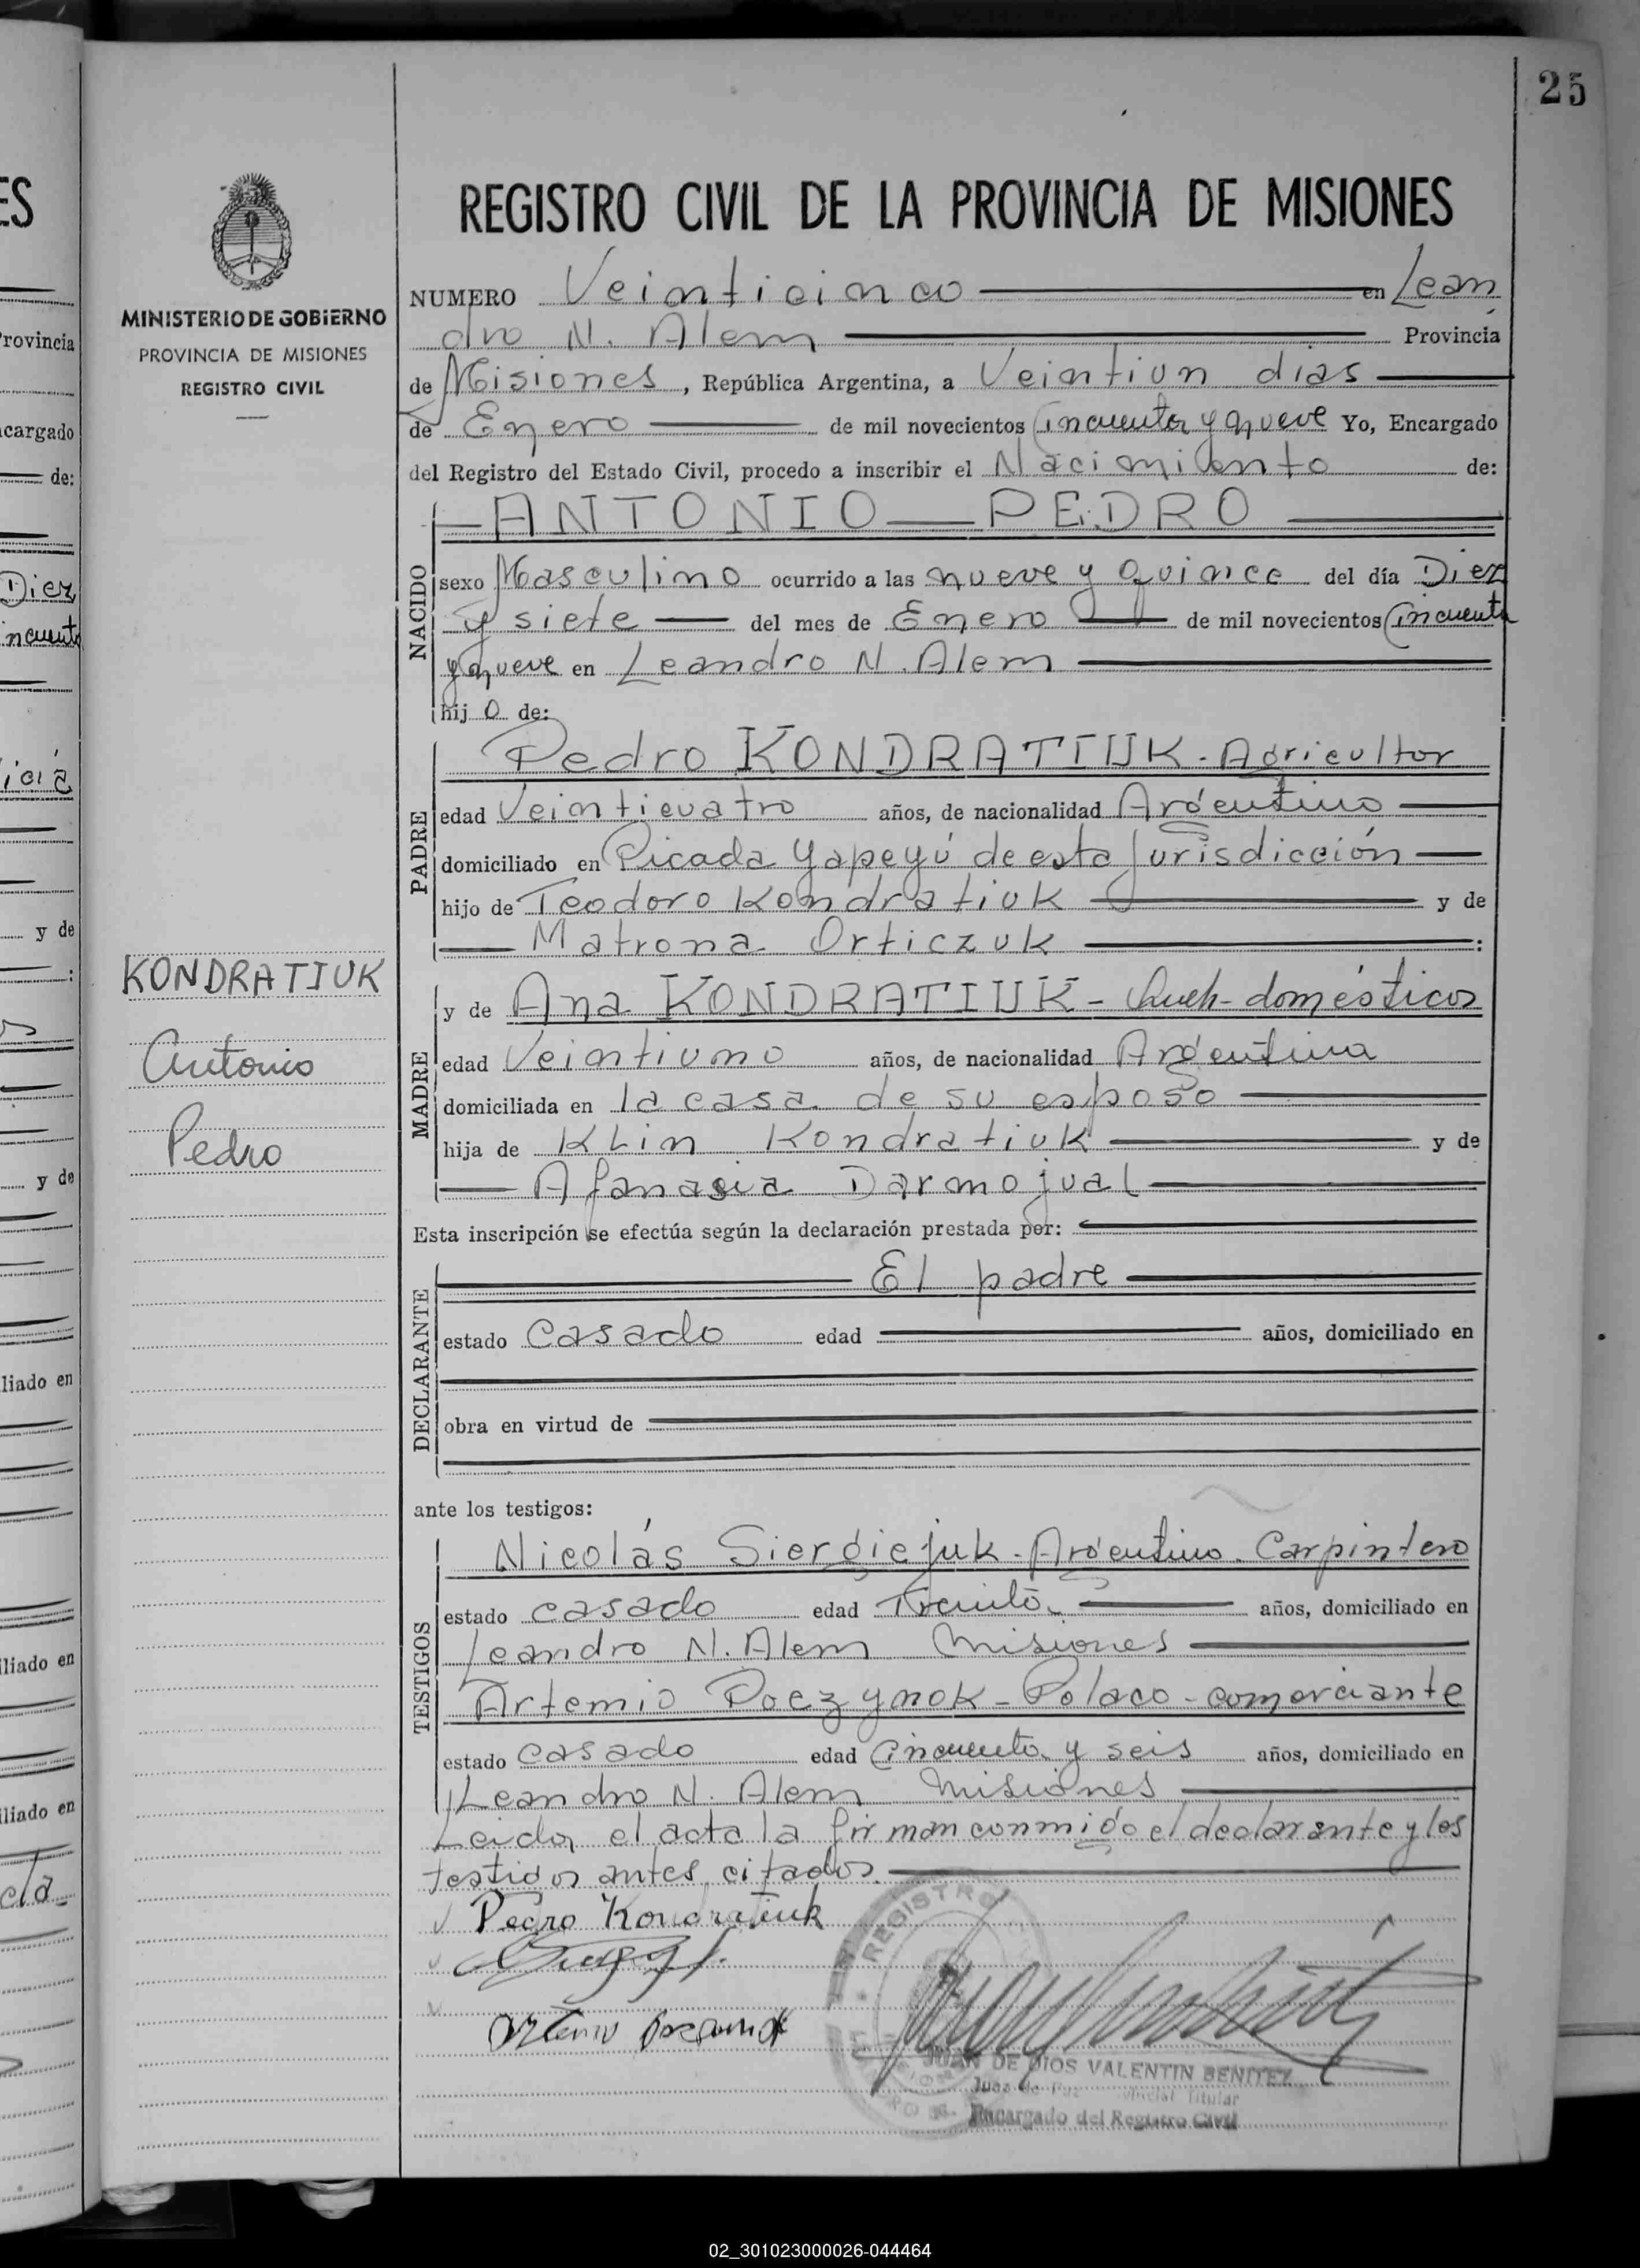 25
MINISTERIO DE GOBIERNO
PROVINCIA DE MISIONES
REGISTRO CIVIL
KONDRATIUK
Antonio
Pedro
REGISTRO CIVIL DE LA PROVINCIA DE MISIONES
NUMERO Veinticinco en Lean
dro N. Alem Provincia
de Misiones, República Argentina, a Veintiun dias
de Enero de mil novecientos Cincuenta y nueve Yo, Encargado
del Registro del Estado Civil, procedo a inscribir el Nacimiento de:
ANTONIO PEDRO
NACIDO
sexo Masculino ocurrido a las nueve y quince del día Diez
y siete del mes de Enero de mil novecientos Cincuenta
y nueve en Leandro N. Alem
hij o de:
Pedro KONDRATIUK - Agricultor
PADRE
edad Veinticuatro años, de nacionalidad Argentino
domiciliado en Picada Yapeyú de esta Jurisdicción
hijo de Teodoro Kondratiuk y de
Matrona Orticzuk :
y de Ana KONDRATIUK - Queh-domésticos
MADRE
edad Veintiuno años, de nacionalidad Argentina
domiciliada en la casa de su esposo
hija de Klin Kondratiuk y de
Afanasia Darmojual
Esta inscripción se efectúa según la declaración prestada por:
El padre
DECLARANTE
estado Casado edad años, domiciliado en
obra en virtud de
ante los testigos:
Nicolás Siergiejuk - Argentino - Carpintero
TESTIGOS
estado casado edad Treinta años, domiciliado en
Leandro N. Alem Misiones
Artemio Poczynok - Polaco - comerciante
estado casado edad Cincuenta y seis años, domiciliado en
Leandro N. Alem Misiones
Leida el acta la firman conmigo el declarante y los
testigos antes citados.
Pedro Kondratiuk
REGISTRO
JUAN DE DIOS VALENTIN BENITEZ
Juez de Paz Titular
Encargado del Registro Civil
02_301023000026-044464